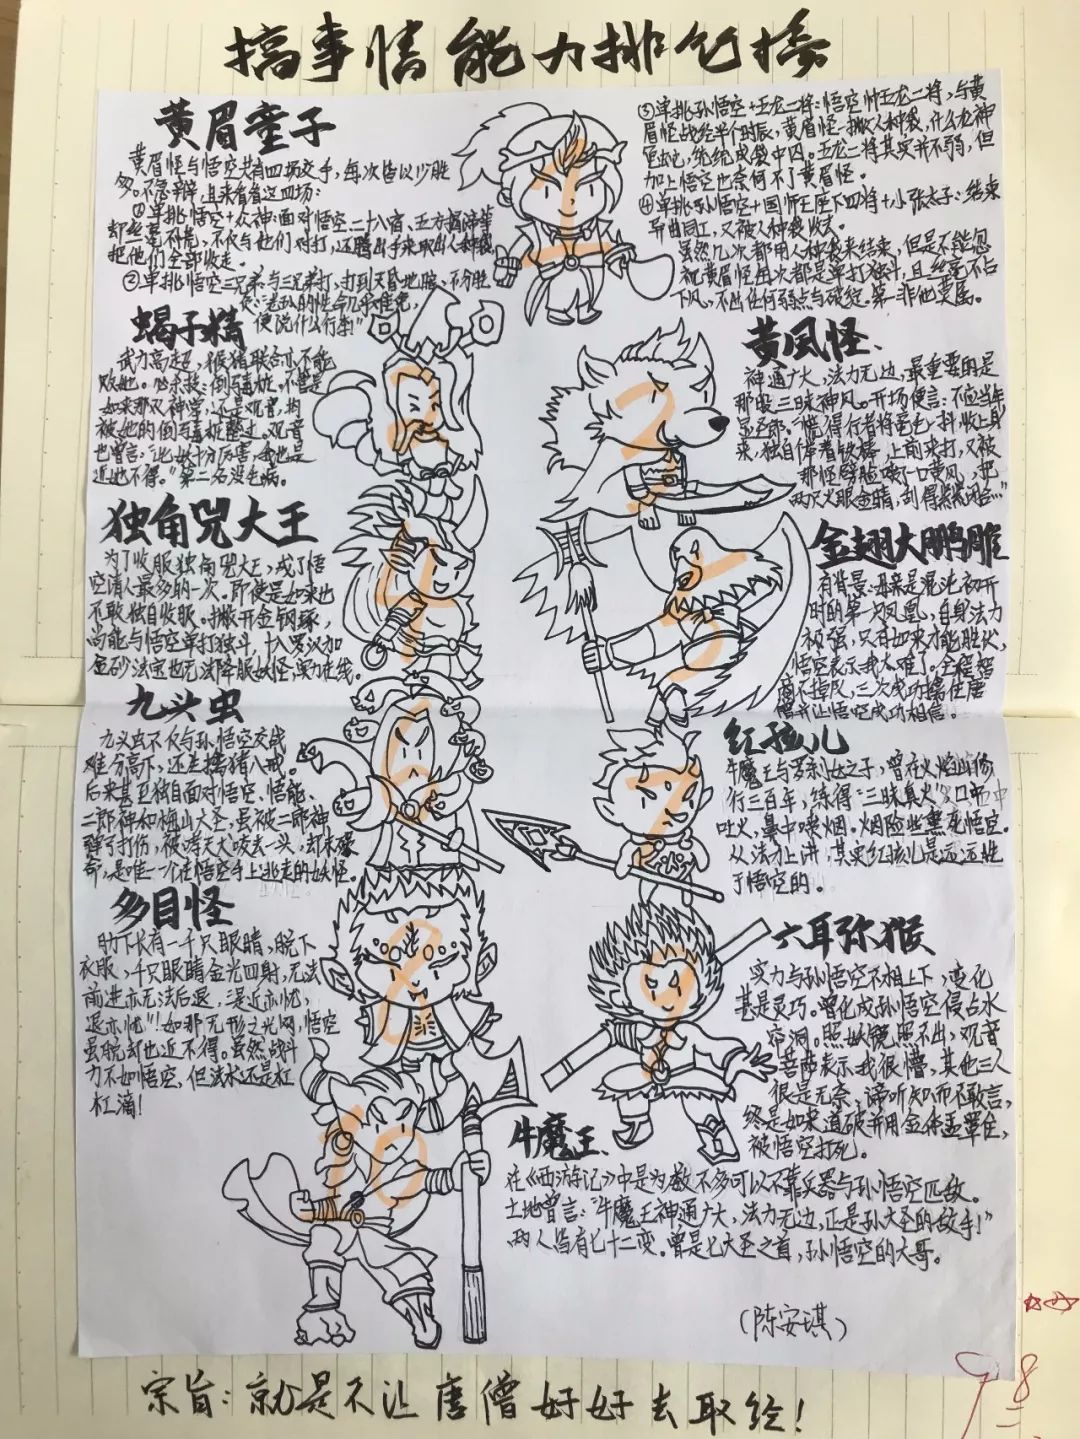 搞事情能力排行榜
黄眉童子
黄眉怪与悟空共有四场交手,每次皆以少胜
多。不急辩,且来看看这四场:
①单挑悟空+众神:面对悟空、二十八宿、五方揭谛等
却丝毫不慌,不仅与他们对打,还腾出手来取出人种袋
把他们全部收走。
②单挑悟空三兄弟:与三兄弟打,打到天昏地暗,不分胜
负:“老孙的性命几乎难免,
便说什么行李!”
③单挑孙悟空+五龙二将:悟空帅五龙二将,与黄
眉怪战经半个时辰,黄眉怪一撒人种袋,什么龙神
龟蛇,统统成袋中囚。五龙二将其实并不弱,但
加上悟空也奈何不了黄眉怪。
④单挑孙悟空+国师王座下四将+小张太子:结束
异曲同工,又被人种袋收去。
虽然几次都用人种袋来结束,但是不能忽
视黄眉怪每次都是单打独斗,且丝毫不占
下风,不出任何弱点与破绽。第一非他莫属。
1
蝎子精
武力高超,猴猪联合亦不能
败她。必杀技:倒马毒桩。不管是
如来那双神掌,还是观音,均
被她的倒马毒桩蜇过。观音
也曾言:“此妖十分厉害,我也是
近她不得。”第二名没毛病。
2
黄风怪
神通广大,法力无边,最重要的是
那股三昧神风。开场便言:不应当年
显圣郎,惜得行者将毫毛一抖,收上身
来,独自个举着铁棒,上前来打,又被
那怪劈脸喷了一口黄风,把
两只火眼金睛,刮得紧紧闭合…”
独角兕大王
为了收服独角兕大王,成了悟
空请人最多的一次。即使是如来也
不敢独自收服。撇开金钢琢,
尚能与悟空单打独斗,十八罗汉加
金砂法宝也无法降服妖怪,实力在线。
4
金翅大鹏雕
有背景:母亲是混沌初开
时的第一只凤凰,自身法力
极强,只有如来才能胜伏,
悟空表示我太难了。全程智
商不掉队,三次成功擒住唐
僧并让悟空成功相信。
5
九头虫
九头虫不仅与孙悟空交战
难分高下,还生擒猪八戒。
后来甚至独自面对悟空、悟能、
二郎神和梅山大圣,虽被二郎神
弹弓打伤,被哮天犬咬去一头,却未殒
命,是唯一一个在悟空手上逃走的妖怪。
红孩儿
牛魔王与罗刹女之子,曾在火焰山修
行三百年,练得“三昧真火”,口中
吐火,鼻中喷烟。烟险些熏死悟空。
从法力上讲,其实红孩儿是远远胜
于悟空的。
7
多目怪
肋下长有一千只眼睛,脱下
衣服,千只眼睛金光四射,无法
前进亦无法后退,“是近亦忧,
退亦忧”!如那无形之光网,悟空
虽脱却也近不得。虽然战斗
力不如悟空,但法术还是杠
杠滴!
8
六耳弥猴
实力与孙悟空不相上下,变化
甚是灵巧。曾化成孙悟空侵占水
帘洞。照妖镜照不出,观音
菩萨表示我很懵,其他三人
很是无奈,谛听知而不敢言,
终是如来道破并用金体盂罩住,
被悟空打死。
9
牛魔王
在《西游记》中是为数不多可以不靠兵器与孙悟空匹敌。
土地曾言:“牛魔王神通广大,法力无边,正是孙大圣的敌手!”
两人皆有七十二变。曾是七大圣之首,孙悟空的大哥。
10
(陈安琪)
宗旨:就是不让唐僧好好去取经!
98